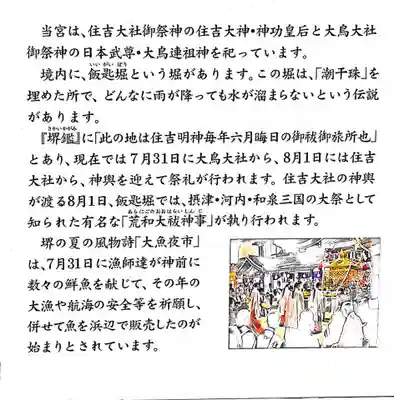 当宮は、住吉大社御祭神の住吉大神・神功皇后と大鳥大社
御祭神の日本武尊・大鳥連祖神を祀っています。
境内に、飯匙堀という堀があります。この堀は、「潮干珠」を
埋めた所で、どんなに雨が降っても水が溜まらないという伝説
があります。
『堺鑑』に「此の地は住吉明神毎年六月晦日の御祓御旅所也」
とあり、現在では7月31日に大鳥大社から、8月1日には住吉
大社から、神輿を迎えて祭礼が行われます。住吉大社の神輿
が渡る8月1日、飯匙堀では、摂津・河内・和泉三国の大祭として
知られた有名な「荒和大祓神事」が執り行われます。
堺の夏の風物詩「大魚夜市」
は、7月31日に漁師達が神前に
数々の鮮魚を献じて、その年の
大漁や航海の安全等を祈願し、
併せて魚を浜辺で販売したのが
始まりとされています。